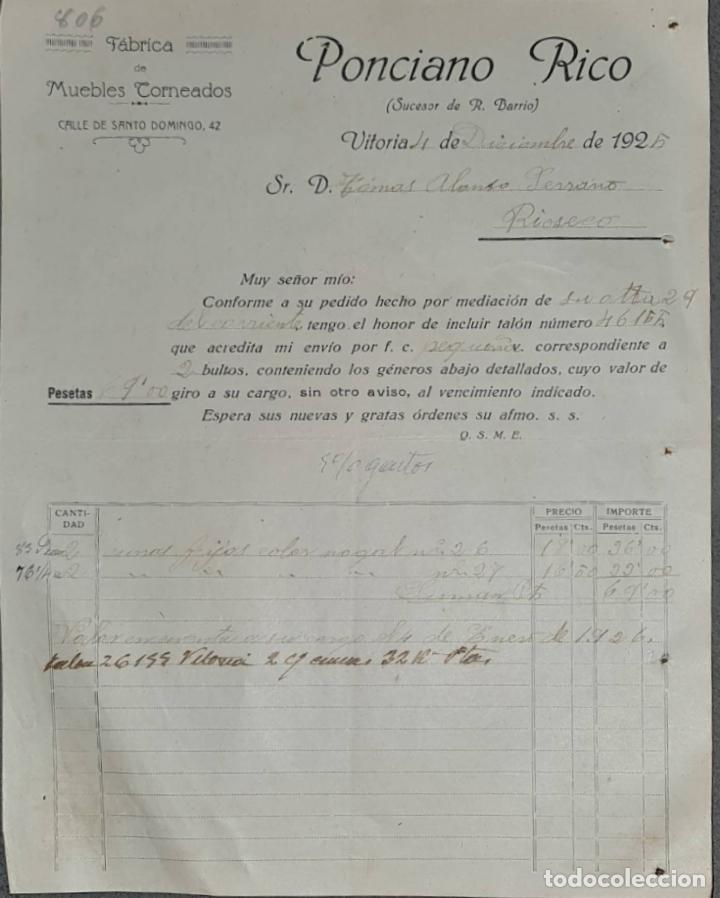 806
Fábrica
de
Muebles Torneados
CALLE DE SANTO DOMINGO, 42
Ponciano Rico
(Sucesor de R. Barrio)
Vitoria 4 de Diciembre de 1925
Sr. D. Tomas Alonso Serrano
Rioseco
Muy señor mío:
Conforme a su pedido hecho por mediación de su atta 29
del corriente tengo el honor de incluir talón número
que acredita mi envío por f. c. pequeña v. correspondiente a
2 bultos, conteniendo los géneros abajo detallados, cuyo valor de
Pesetas 69'00 giro a su cargo, sin otro aviso, al vencimiento indicado.
Espera sus nuevas y gratas órdenes su afmo. s. s.
Q. S. M. E.
CANTIDAD PRECIO IMPORTE
Pesetas Cts. Pesetas Cts.
2 camas fijas color nogal nº 26 18'00 36'00
2 " " " " nº 27 16'50 33'00
Suman Pts 69'00
Valor en cuenta a su cargo el 4 de Enero de 1926
talon 26155 Vitoria 2 camas 32 K Ptas
todocoleccion.net